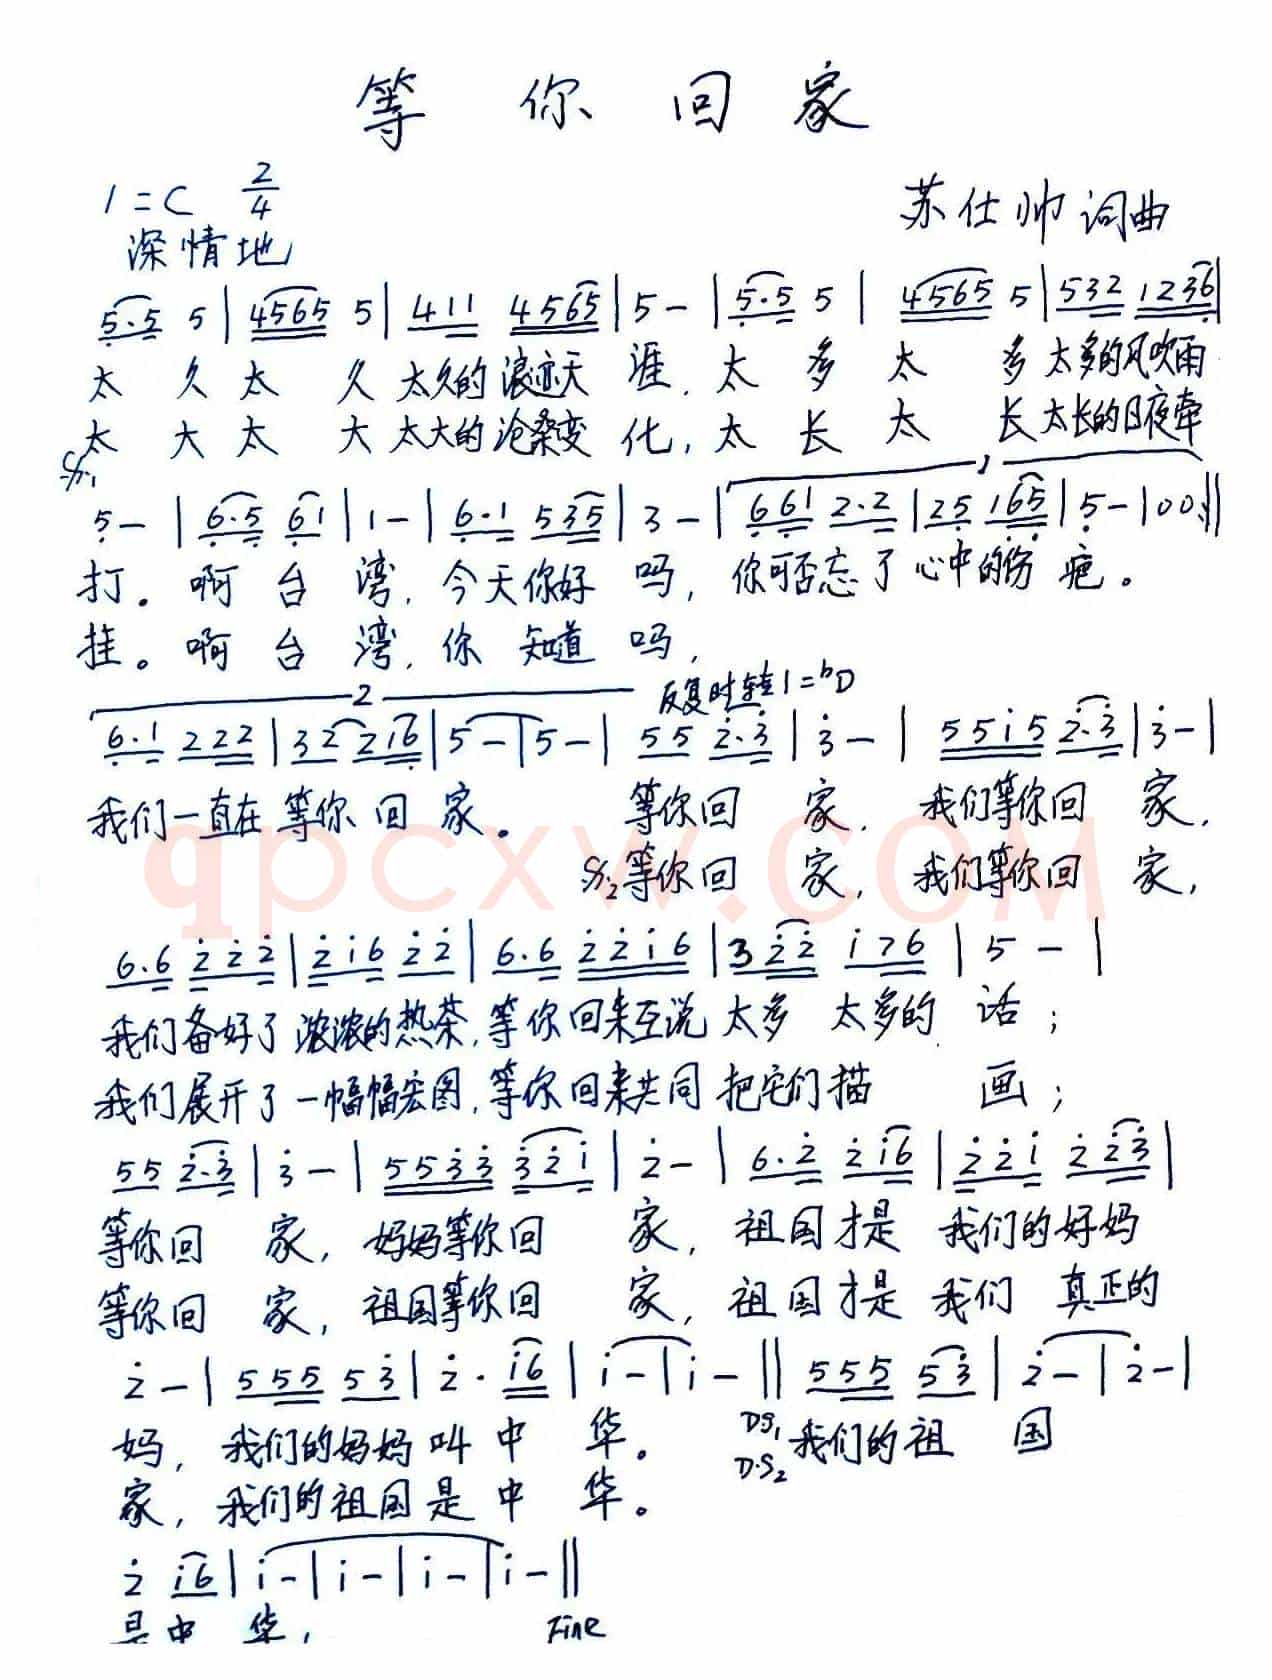 等你回家
1=C 2/4
苏仕帅 词曲
深情地
5.5 5 | 4565 5 | 411 4565 | 5 - | 5.5 5 | 4565 5 | 532 1236 |
太久太久 太久的浪迹天涯,太多太多 太多的风吹雨
太大太大 太大的沧桑变化,太长太长 太长的日夜牵
5 - | 6.5 61 | 1 - | 6.1 535 | 3 - | 661 2.2 | 25 165 | 5 - | 00 :||
打。啊台湾,今天你好吗,你可否忘了心中的伤疤。
挂。啊台湾,你知道吗,
2 反复时转1=bD
6.1 222 | 32 216 | 5 - | 5 - | 55 2.3 | 3 - | 5515 2.3 | 3 - |
我们一直在等你回家。等你回家,我们等你回家,
等你回家,我们等你回家,
6.6 222 | 216 22 | 6.6 2216 | 322 176 | 5 - |
我们备好了浓浓的热茶,等你回来互说太多太多的话;
我们展开了一幅幅宏图,等你回来共同把它们描画;
55 2.3 | 3 - | 5533 321 | 2 - | 6.2 216 | 221 223 |
等你回家,妈妈等你回家,祖国才是我们的好妈
等你回家,祖国等你回家,祖国才是我们真正的
2 - | 555 53 | 2. 16 | 1 - | 1 - || 555 53 | 2 - | 2 - |
妈,我们的妈妈叫中华。 DS1 我们的祖国
家,我们的祖国是中华。 D.S2
2 16 | 1 - | 1 - | 1 - | 1 - ||
是中华, Fine
qpcxw.COM